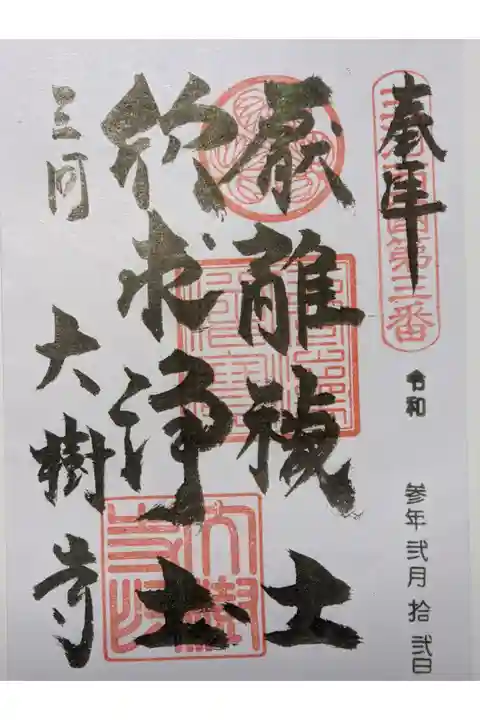 奉拝
第三番
令和 参年 弐月 拾弐日
厭離穢土
欣求浄土
三河 大樹寺
大樹寺印